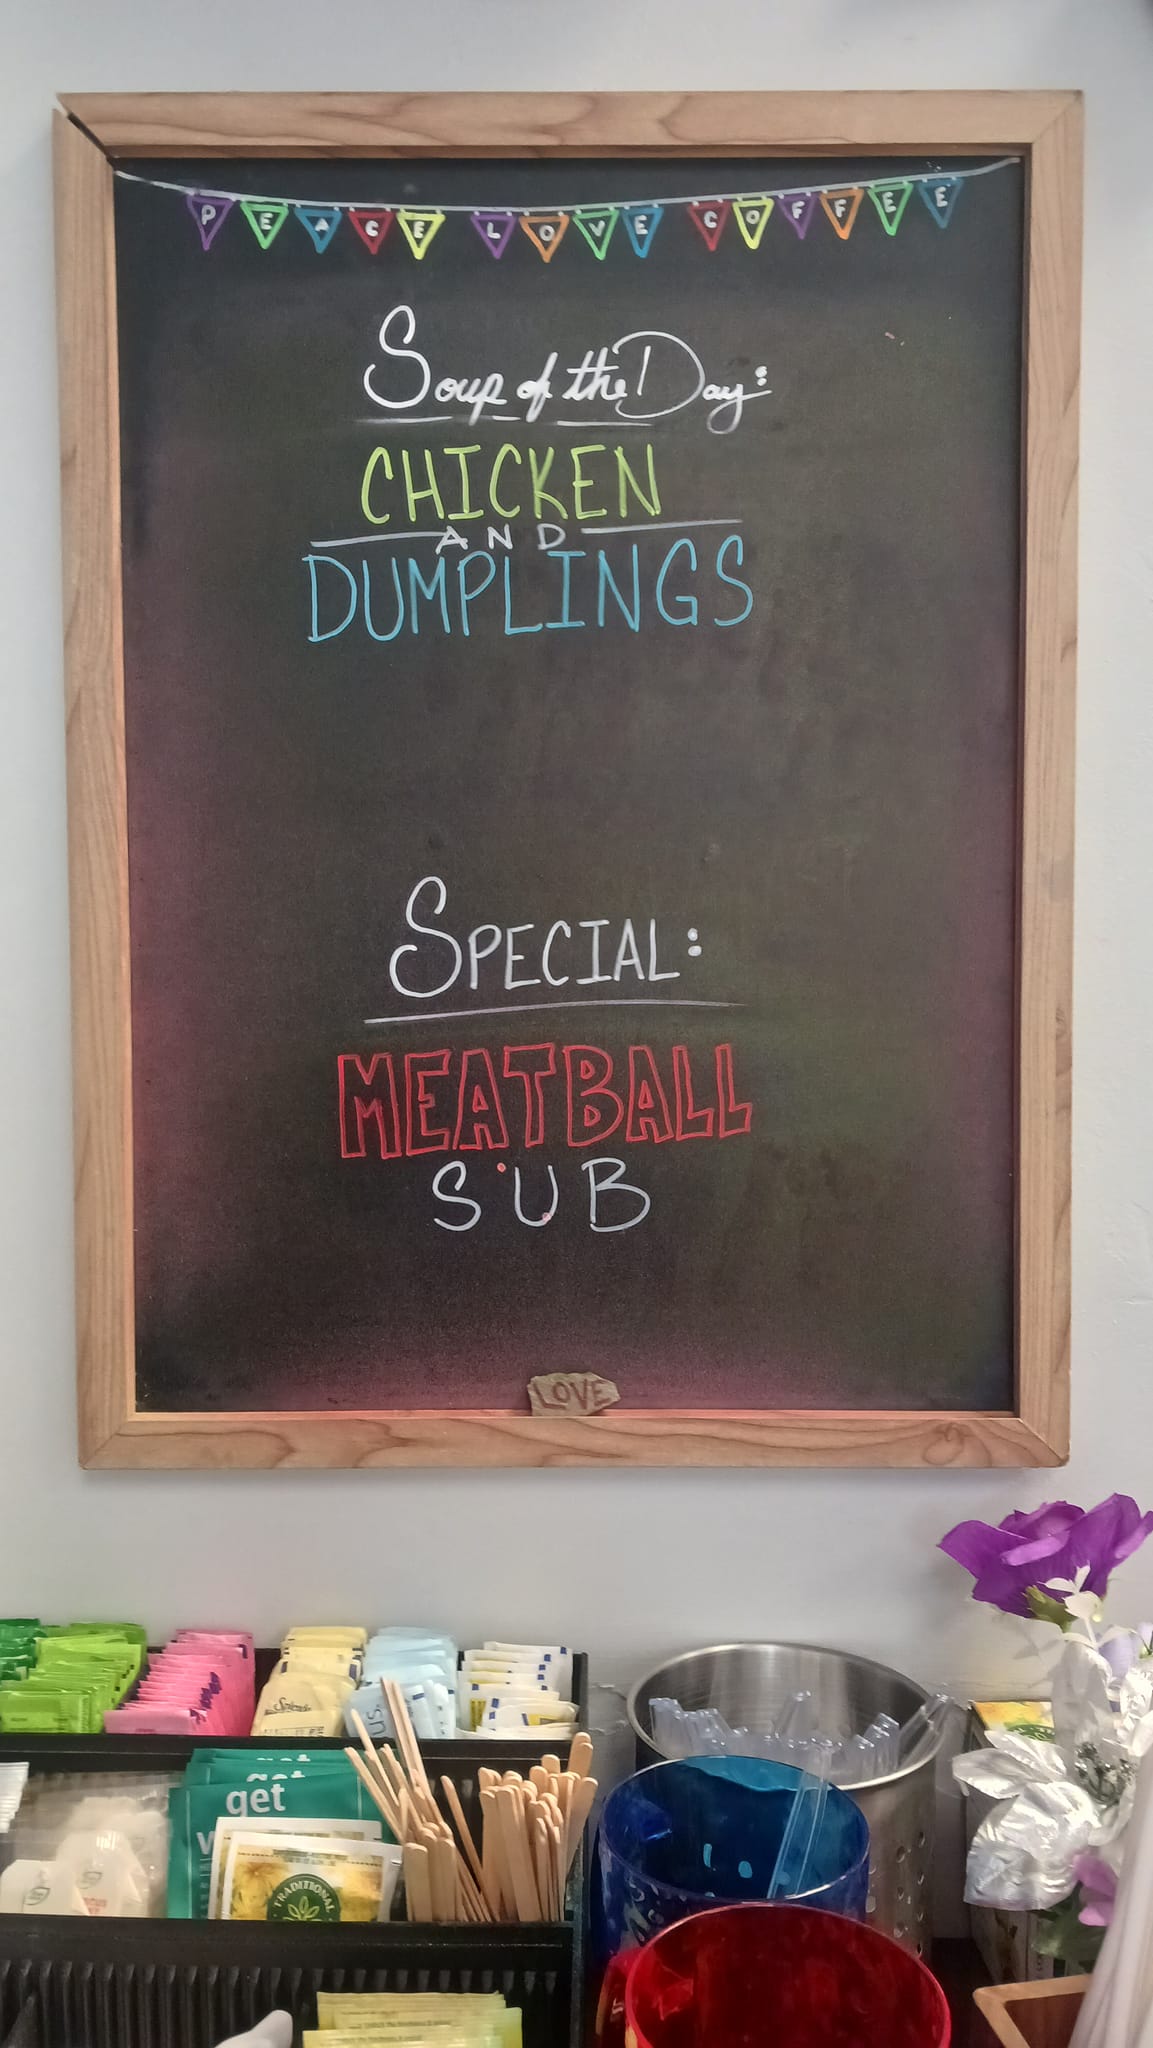 PEACE LOVE COFFEE
Soup of the Day:
CHICKEN
AND
DUMPLINGS
SPECIAL:
MEATBALL
SUB
LOVE
Splenda
get
TRADITIONAL